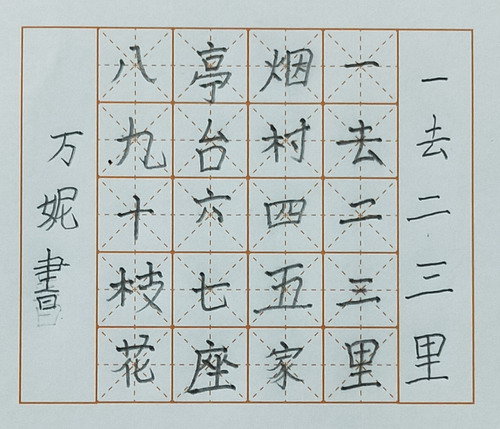 一去二三里
一去二三里
烟村四五家
亭台六七座
八九十枝花
万妮書